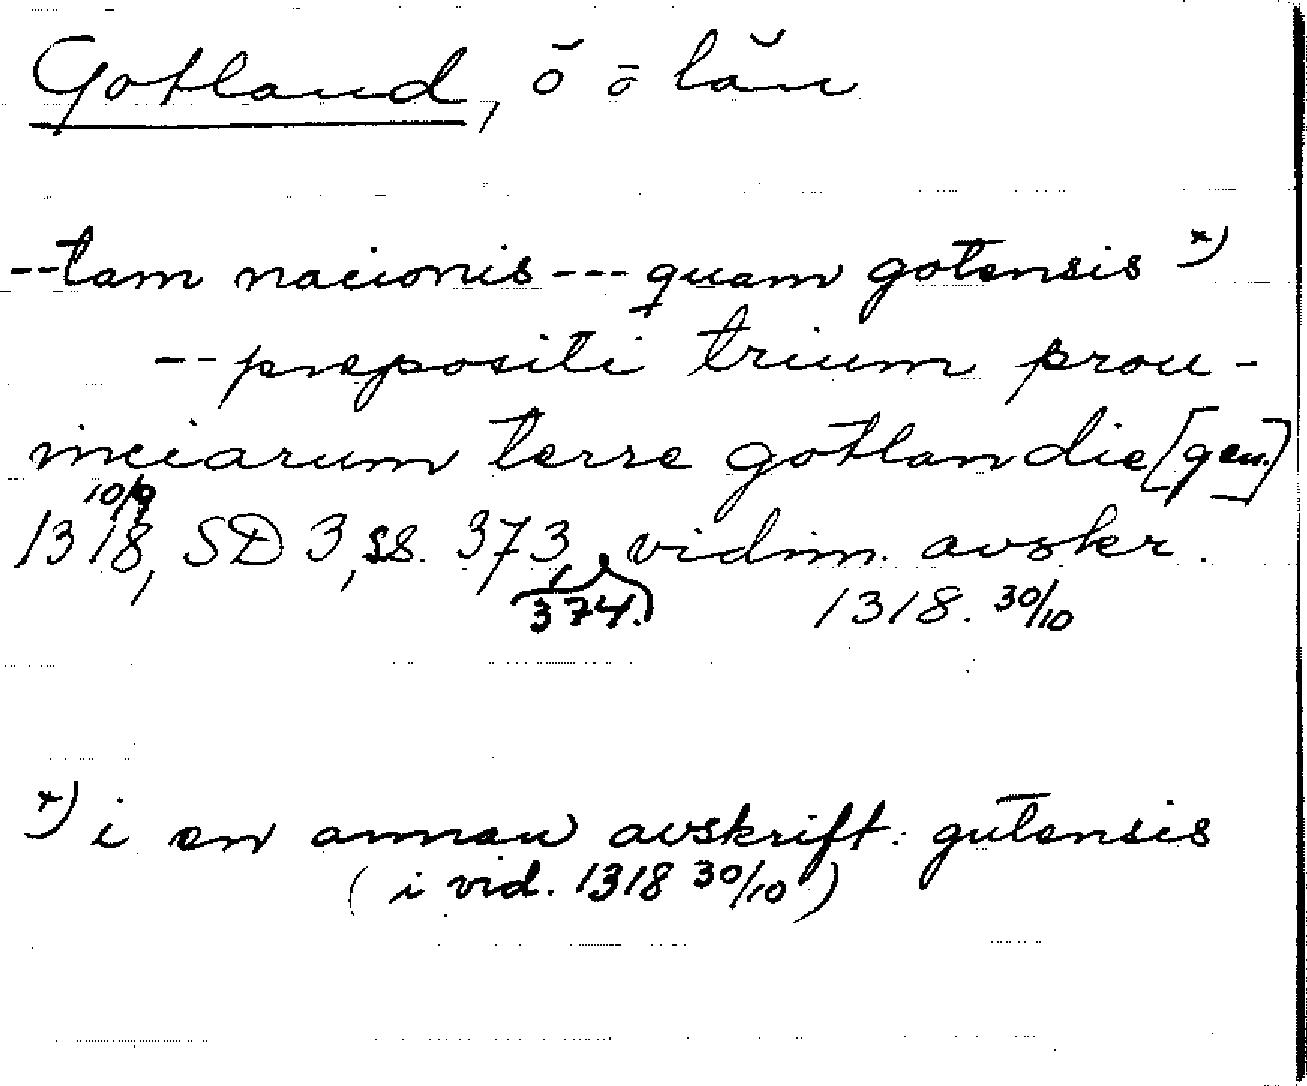 Gotland, ö o län
--tam nacionis --- quam gotensis x)
-- prepositi trium prou-
inciarum terre gotlandie [gen.]
1318 10/9, SD 3, ss. 373, 374. vidim. avskr.
1318. 30/10
x) i en annan avskrift: gutensis
(i vid. 1318 30/10)